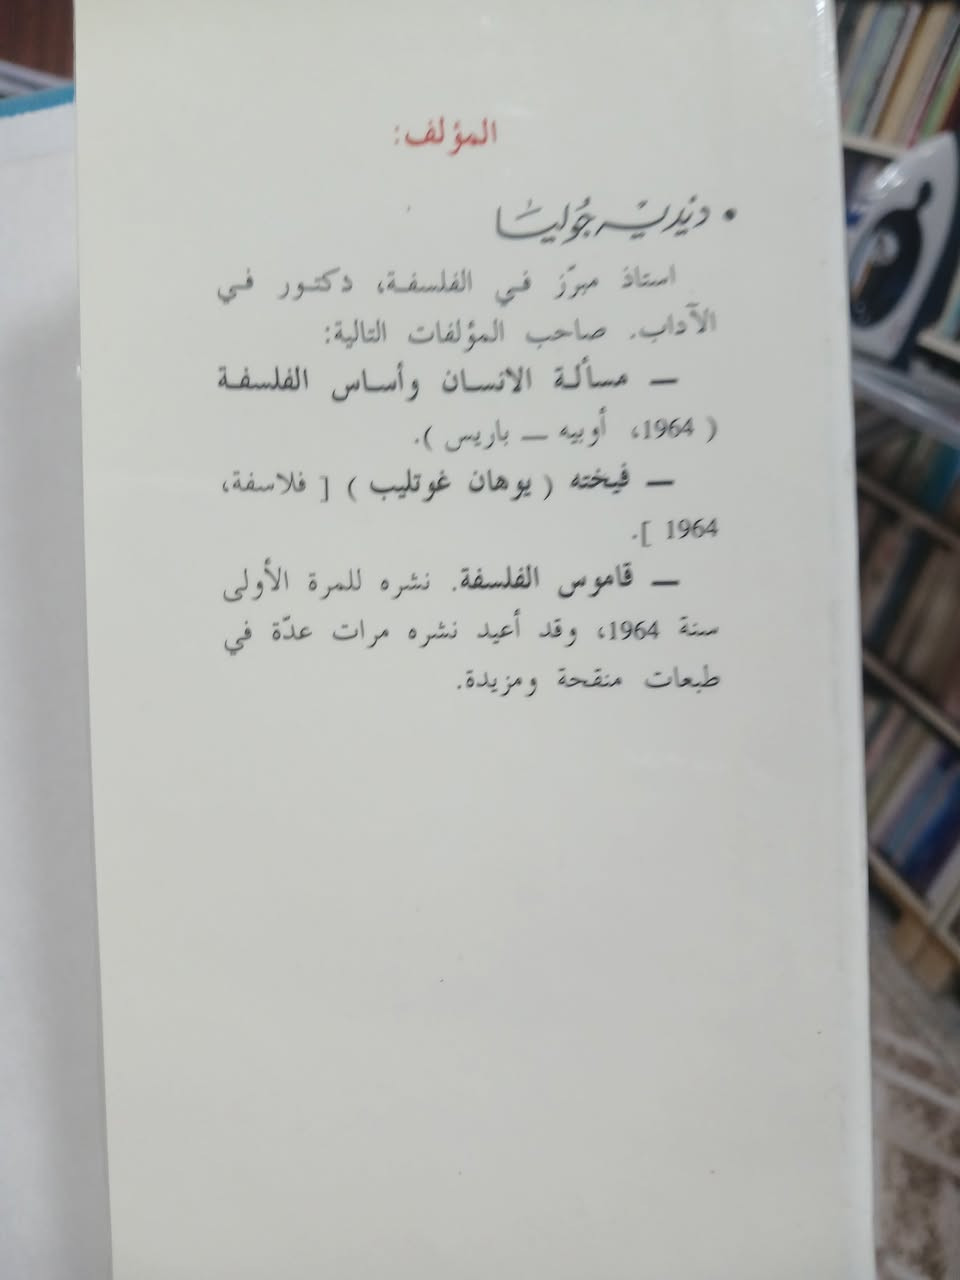 المؤلف:
• ديديه جوليا
استاذ مبرّز في الفلسفة، دكتور في
الآداب. صاحب المؤلفات التالية:
— مسألة الانسان وأساس الفلسفة
( 1964، أوبيه — باريس ).
— فيخته ( يوهان غوتليب ) [ فلاسفة،
1964 ].
— قاموس الفلسفة. نشره للمرة الأولى
سنة 1964، وقد أعيد نشره مرات عدّة في
طبعات منقحة ومزيدة.